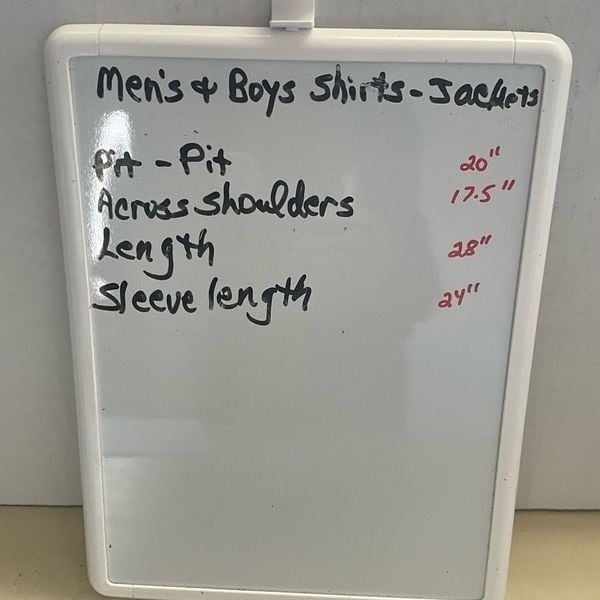 Men's & Boys Shirts-Jackets
Pit - Pit 20"
Across shoulders 17.5"
Length 28"
Sleeve length 24"